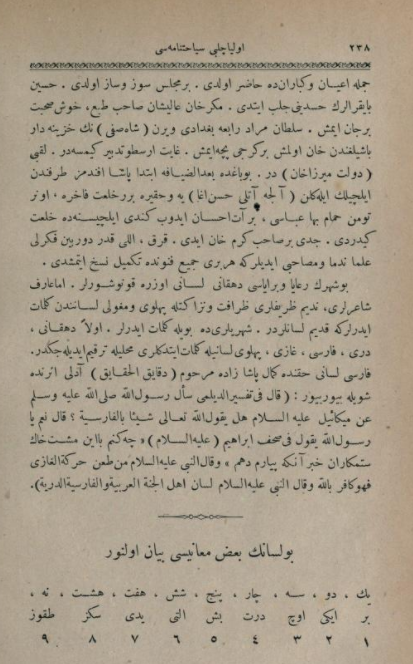 ٢٣٨ اولياچلبى سياحتنامه‌سى
جمله اعيان وكباران‌ده حاضر اولدى . برمجلس سوز وساز اولدى . حسين
بايقرالرك حسدينى جلب ايتدى . مكرخان عاليشان صاحب طبع ، خوش صحبت
برجان ايمش . سلطان مراد رابعه بغدادى ويرن ( شاه‌صفى ) نك خزينه دار
باشيلغندن خان اولمش بركرجى بچه‌ايمش . غايت ارسطوتدبير كيمسه‌در . لقبى
( دولت ميرزاخان ) در . بوباغده بعدالضيافه ابتدا پاشا افندمز طرفندن
ايلچيلك ايله‌كلن ( آلجه آتلى حسن‌اغا ) يه وحقيره بررخلعت فاخره ، اونر
تومن حمام بها عباسى ، برآت‌احسان ايدوب كندى ايلچيسنه‌ده خلعت
كيدردى . جدى برصاحب كرم خان ايدى . قرق ، اللى قدر دوربين فكرلى
علما ندما ومصاحبى ايديلركه هربرى جميع فنونده تكميل نسخ ايتمشدى .
بوشهرك رعايا وبراياسى دهقانى لسانى اوزره قونوشورلر . اماعارف
شاعرلرى، نديم ظريفلرى ظرافت ونزاكتله پهلوى ومغولى لسانندن كلمات
ايدرلركه قديم لسانلردر . شهريلرى‌ده بويله كلمات ايدرلر . اولا دهقانى ،
درى ، فارسى ، غازى ، پهلوى لسانيله كلمات‌ايتدكلرى محليله ترقيم‌ايديله‌جكدر.
فارسى لسانى حقنده كمال پاشا زاده مرحوم ( دقايق الحقايق ) آدلى اثرنده
شويله بيوريور : ( قال فى‌تفسيرالديلمى سأل رسول‌الله صلى‌الله عليه وسلم
عن ميكائيل عليه السلام هل يقول‌الله تعالى شيئا بالفارسية ؟ قال نعم يا
رسول‌الله يقول فى‌صحف ابراهيم (عليه‌السلام) « چه‌كنم بااين مشت‌خاك
ستمكاران خبر آنكه بيارم دهم » وقال‌النبى عليه‌السلام من‌طعن حركةالغازى
فهوكافر بالله وقال النبى عليه‌السلام لسان اهل الجنة العربيةوالفارسيةالدرية).
بولسانك بعض معانيسى بيان اولنور
يك ، دو ، سه ، چار ، پنج ، شش ، هفت ، هشت ، نه ،
بر ايكى اوچ درت بش التى يدى سكز طقوز
١ ٢ ٣ ٤ ٥ ٦ ٧ ٨ ٩